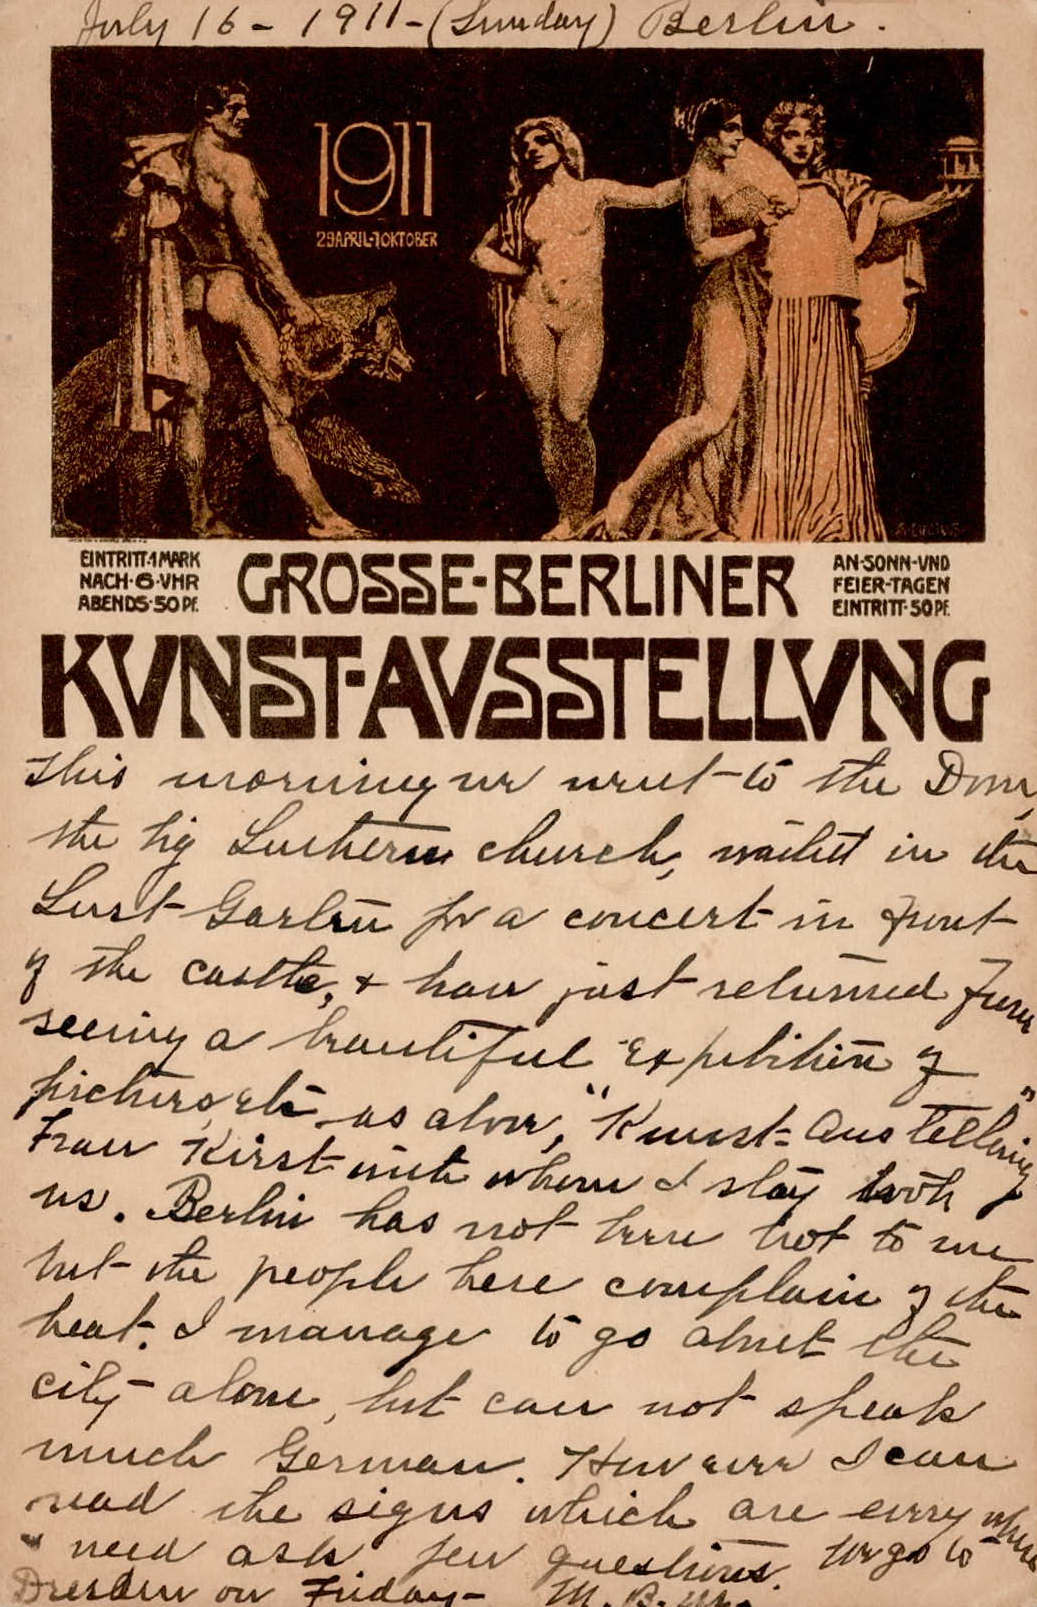 July 16 - 1911 - (Sunday) Berlin.
1911
29 APRIL-1 OKTOBER
EINTRITT·1 MARK
NACH·6·VHR
ABENDS·50 Pf.
GROSSE-BERLINER
AN·SONN-VND
FEIER-TAGEN
EINTRITT·50 Pf.
KVNST-AVSSTELLVNG
This morning we went to the Dom,
the big Luthern church, waited in the
Lust-Garten for a concert in front
of the castle, + have just returned from
seeing a beautiful Expibition of
pictures, etc - as above, "Kunst-Austelling"
Frau Kirst with whom I stay took
us. Berlin has not been hot to me
but the people here complain of the
heat. I manage to go about the
city alone, but can not speak
much German. However I can
read the signs which are every where
& need ask few questions. We go to
Dresden on Friday - M. B.